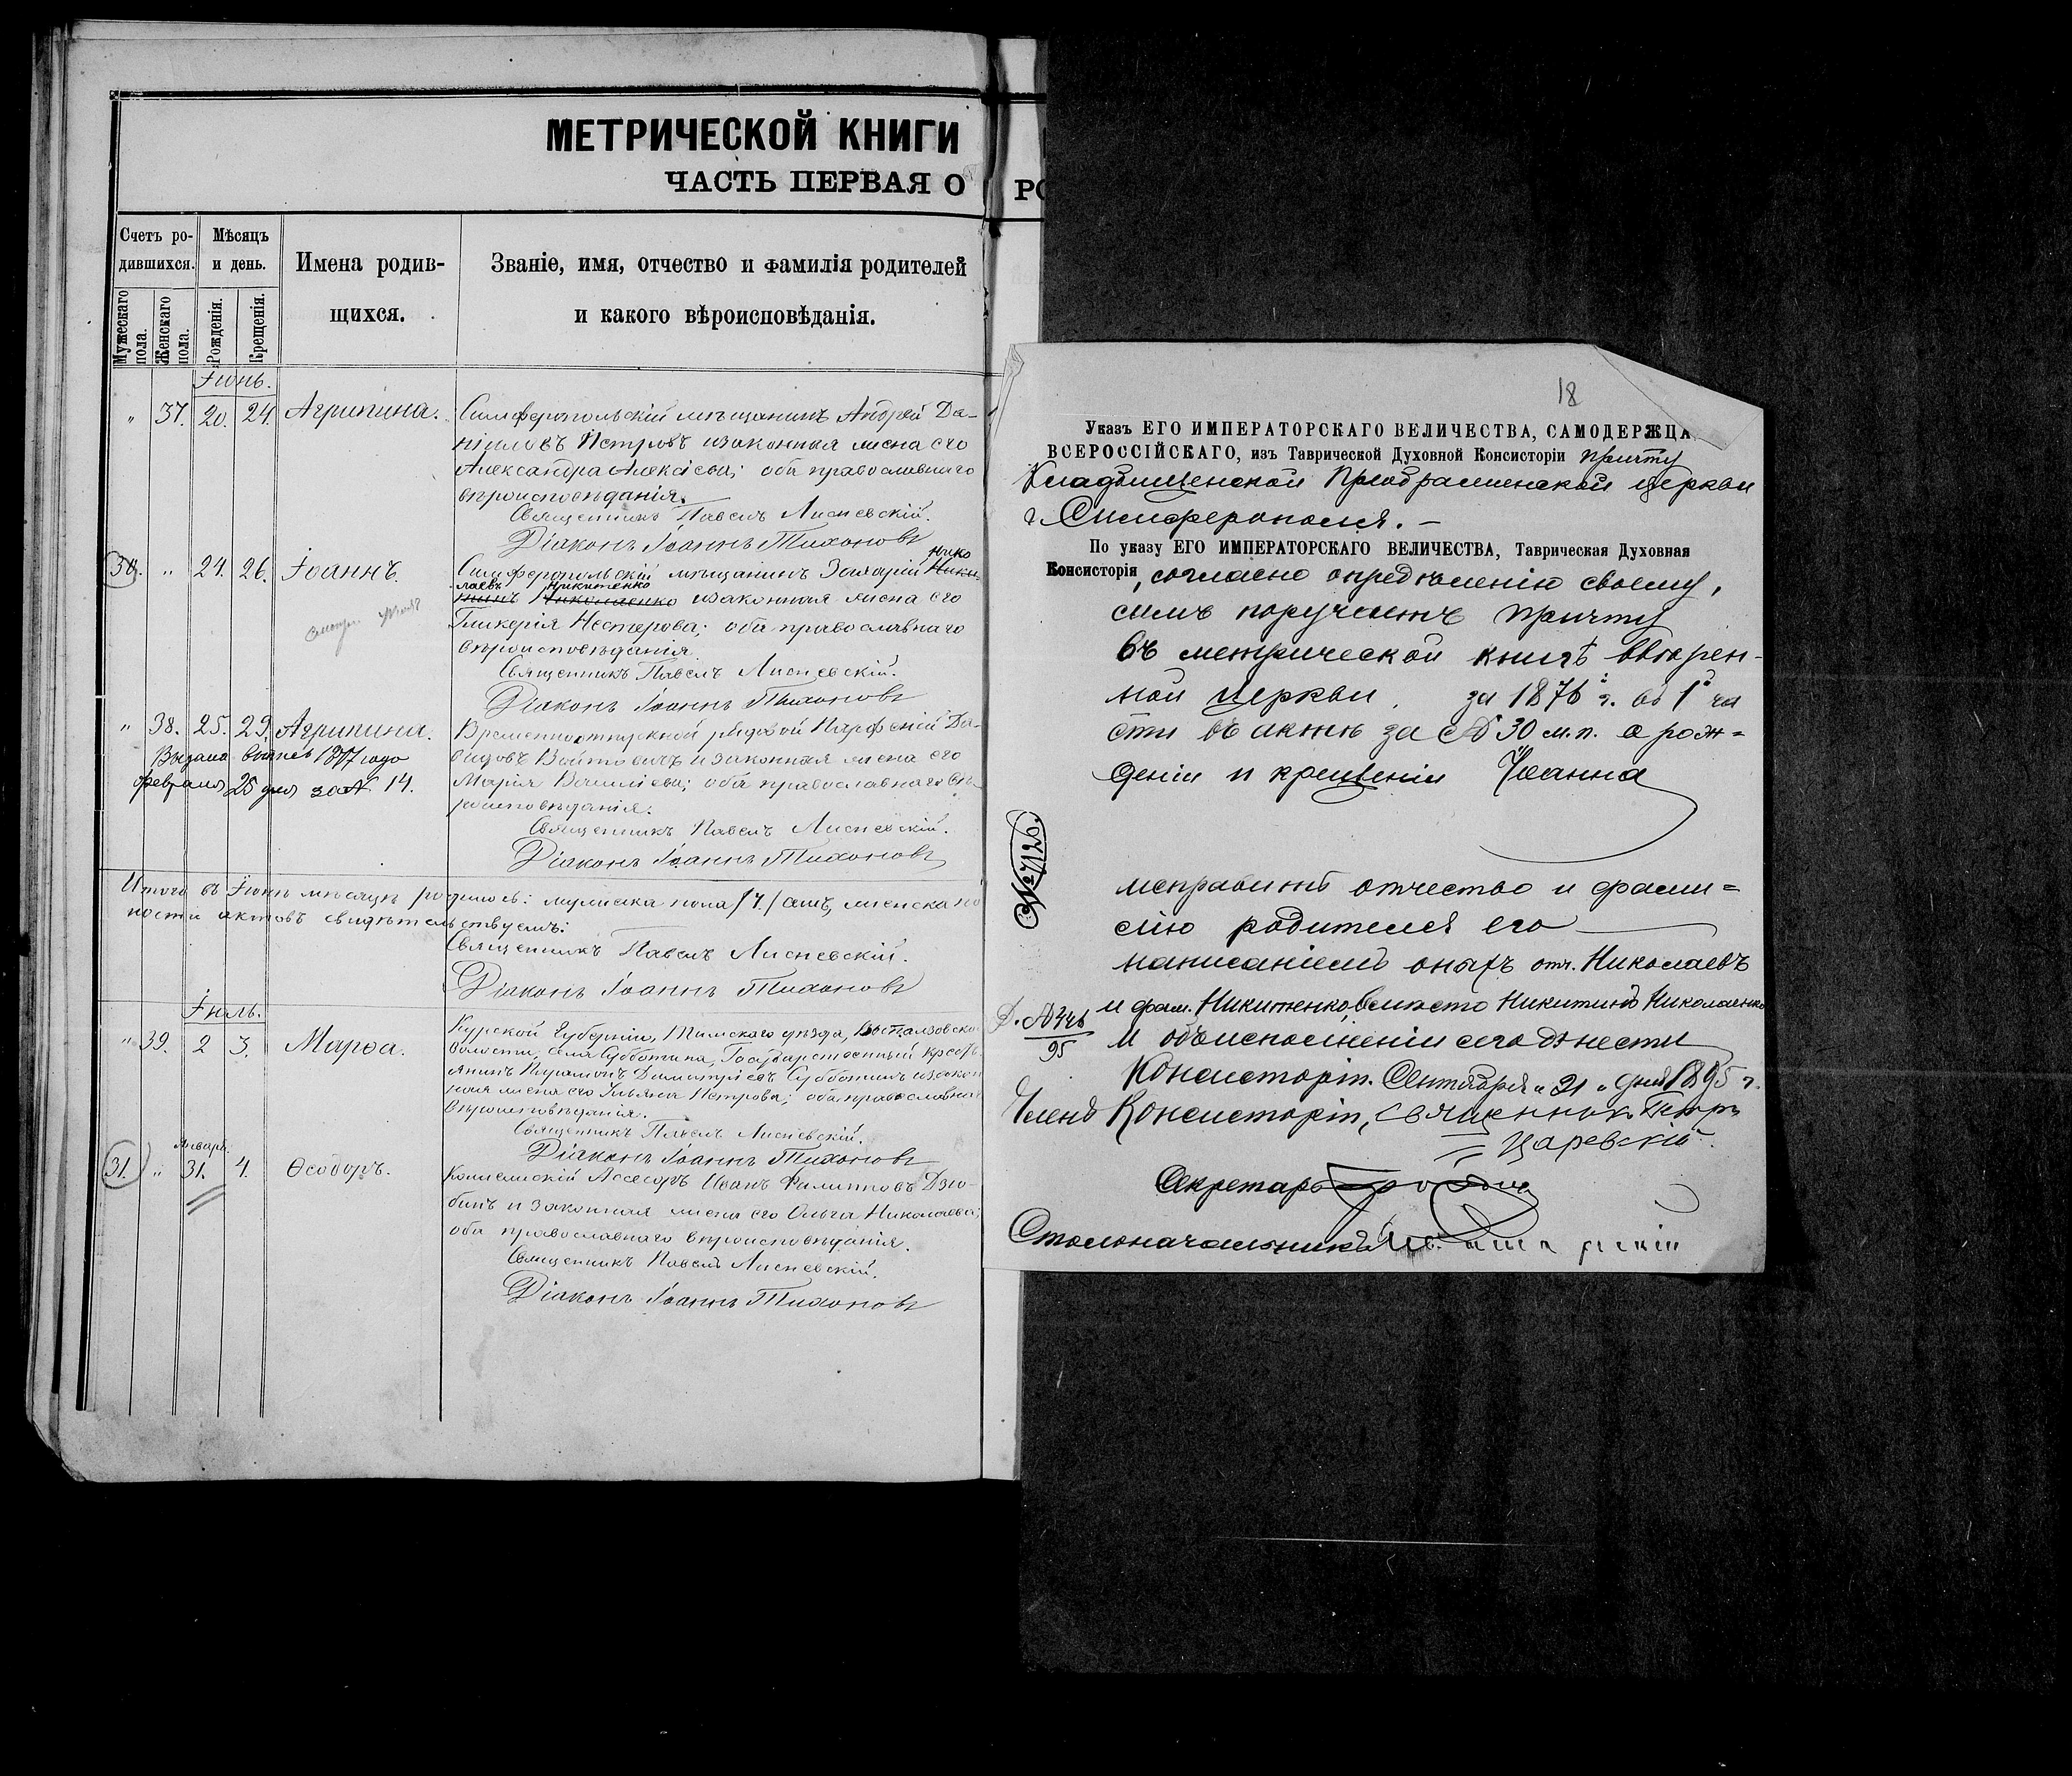 МЕТРИЧЕСКОЙ КНИГИ
ЧАСТЬ ПЕРВАЯ О РО
Счетъ ро-
дившихся.
Мѣсяцъ
и день.
Имена родив-
щихся.
Званіе, имя, отчество и фамилія родителей
и какого вѣроисповѣданія.
Мужескаго пола.
Женскаго пола.
Рожденія.
Крещенія.
Іюнь.
" 37. 20. 24. Агрипина.
Симферопольскій мѣщанинъ Андрей Да-
ніиловъ Петровъ и законная жена его
Александра Алексіева; оба православнаго
вѣроисповѣданія.
Священникъ Павелъ Лисневскій.
Діаконъ Іоаннъ Тихоновъ
30. " 24. 26. Іоаннъ.
Нико
Симферопольскій мѣщанинъ Захарій Ники-
лаевъ Никитенко
тинъ Николаенко и законная жена его
Гликерія Нестерова; оба православнаго
вѣроисповѣданія
Священникъ Павелъ Лисневскій.
Діаконъ Іоаннъ Тихоновъ
" 38. 25. 29. Агрипина.
Выдана выпись 1897 года
февраля 25 дня за № 14.
Временноотпускной рядовой Парфеній Да-
видовъ Войтовичъ и законная жена его
Марія Василіева; оба православнаго вѣ-
роисповѣданія.
Священникъ Павелъ Лисневскій.
Діаконъ Іоаннъ Тихоновъ
Итого въ Іюнѣ мѣсяцѣ родилось: мужеска пола /7./ семь, женска по
ности актовъ свидѣтельствуемъ:
Священникъ Павелъ Лисневскій.
Діаконъ Іоаннъ Тихоновъ
Іюль.
" 39. 2 3. Марѳа.
Курской Губерніи, Тимского уѣзда,
волости, села Субботина, Государственный кресть-
янинъ Парамонъ Димитріевъ Субботинъ и закон
ная жена его Ульяна Петрова; оба православнаго
вѣроисповѣданія.
Священникъ Павелъ Лисневскій.
Діаконъ Іоаннъ Тихоновъ
Январь.
31. " 31. 4. Ѳеодоръ.
Колежскій Асесоръ Иванъ Филипповъ Дзю-
бинъ и законная жена его Ольга Николаева;
оба православнаго вѣроисповѣданія.
Священникъ Павелъ Лисневскій.
Діаконъ Іоаннъ Тихоновъ
18
Указъ ЕГО ИМПЕРАТОРСКАГО ВЕЛИЧЕСТВА, САМОДЕРЖЦА
ВСЕРОССІЙСКАГО, изъ Таврической Духовной Консисторіи причту
Кладбищенской Преображенской церкви
г. Симферополя. –
По указу ЕГО ИМПЕРАТОРСКАГО ВЕЛИЧЕСТВА, Таврическая Духовная
Консисторія, согласно опредѣленію своему,
симъ поручаетъ причту
въ метрической книгѣ ввѣрен-
ной церкви за 1876 г. въ 1й ча
сти въ актѣ за № 30 м. п. о рож=
деніи и крещеніи Іоанна
исправить отчество и фами=
лію родителя его
написаніемъ оныхъ отч. Николаевъ
и фам. Никитенко, вмѣсто Никитинъ Николаенко
и объ исполненіи сего донести
Консисторіи. Сентября "21" дня 1895 г.
№ 7126.
Членъ Консисторіи, Священникъ Петръ
Царевскій
Секретарь
Столоначальникъ